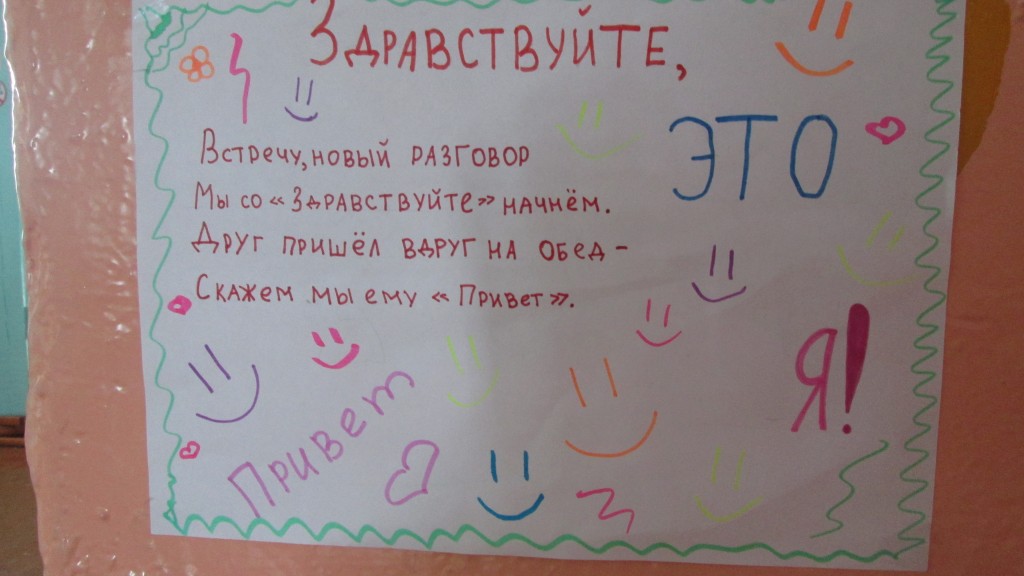 ЗДРАВСТВУЙТЕ,
ЭТО
Я!
Встречу, новый разговор
Мы со «Здравствуйте» начнём.
Друг пришёл вдруг на обед –
Скажем мы ему «Привет».
Привет